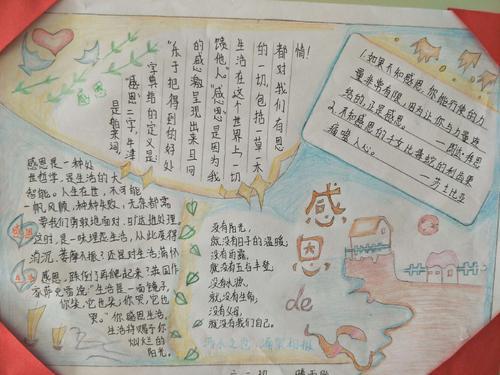 感恩
"感恩"二字,牛津
字典给的定义是:
"乐于把得到的好处
的感激呈现出来且回
馈他人"。"感恩"是因为我
生活在这个世界上,一切
的一切,包括一草一木
都对我们有恩
情!
是舶来词,
1.如果不知感恩,你能行使的力
量非常有限,因为让你与力量连
结的正是感恩。
2.不知感恩的子女比毒蛇的利齿更
痛噬人心。
——莎士比亚
感恩是一种处
世哲学,是生活的大
智慧。人生在世,不可能
一帆风顺,种种失败、无奈都需
要我们勇敢地面对、旷达地处理。
这时,是一味埋怨生活,从此变得
消沉、萎靡不振?还是对生活满怀
感恩,跌倒了再爬起来?英国作
家萨克雷说:"生活是一面镜子,
你笑,它也笑;你哭,它也
哭。"你感恩生活,
生活将赐予你
灿烂的
阳光。
没有阳光,
就没有日子的温暖;
没有雨露,
就没有五谷丰登;
没有水源,
就没有生命;
没有父母,
就没有我们自己。
滴水之恩,涌泉相报
感
恩
de
心